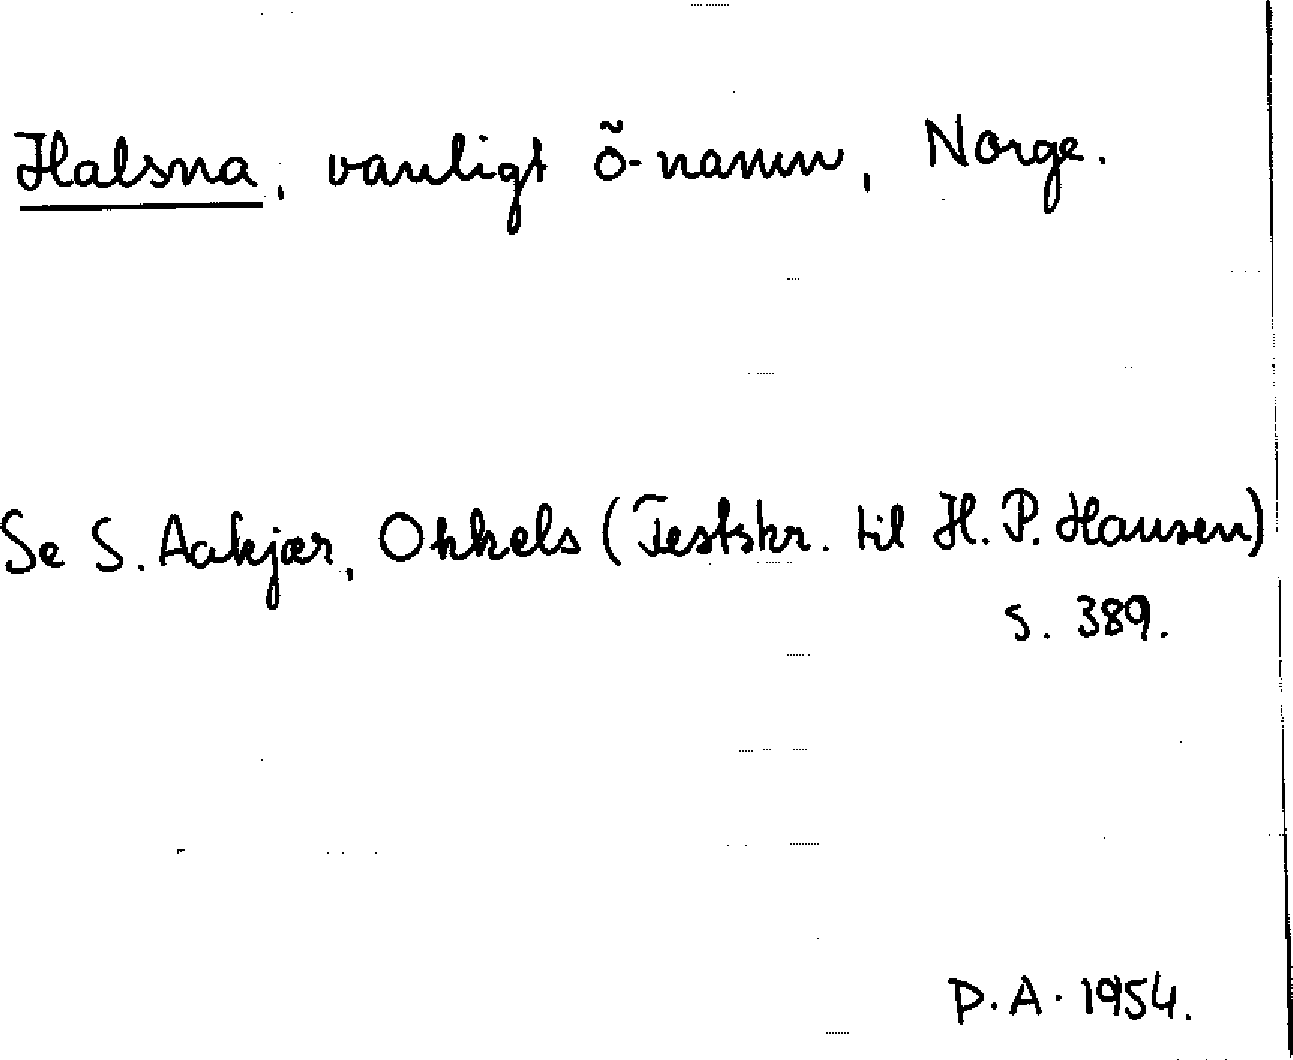 Halsna, vanligt ö-namn, Norge.
Se S. Aakjær, Okkels (Festskr. til H. P. Hansen)
s. 389.
D. A. 1954.